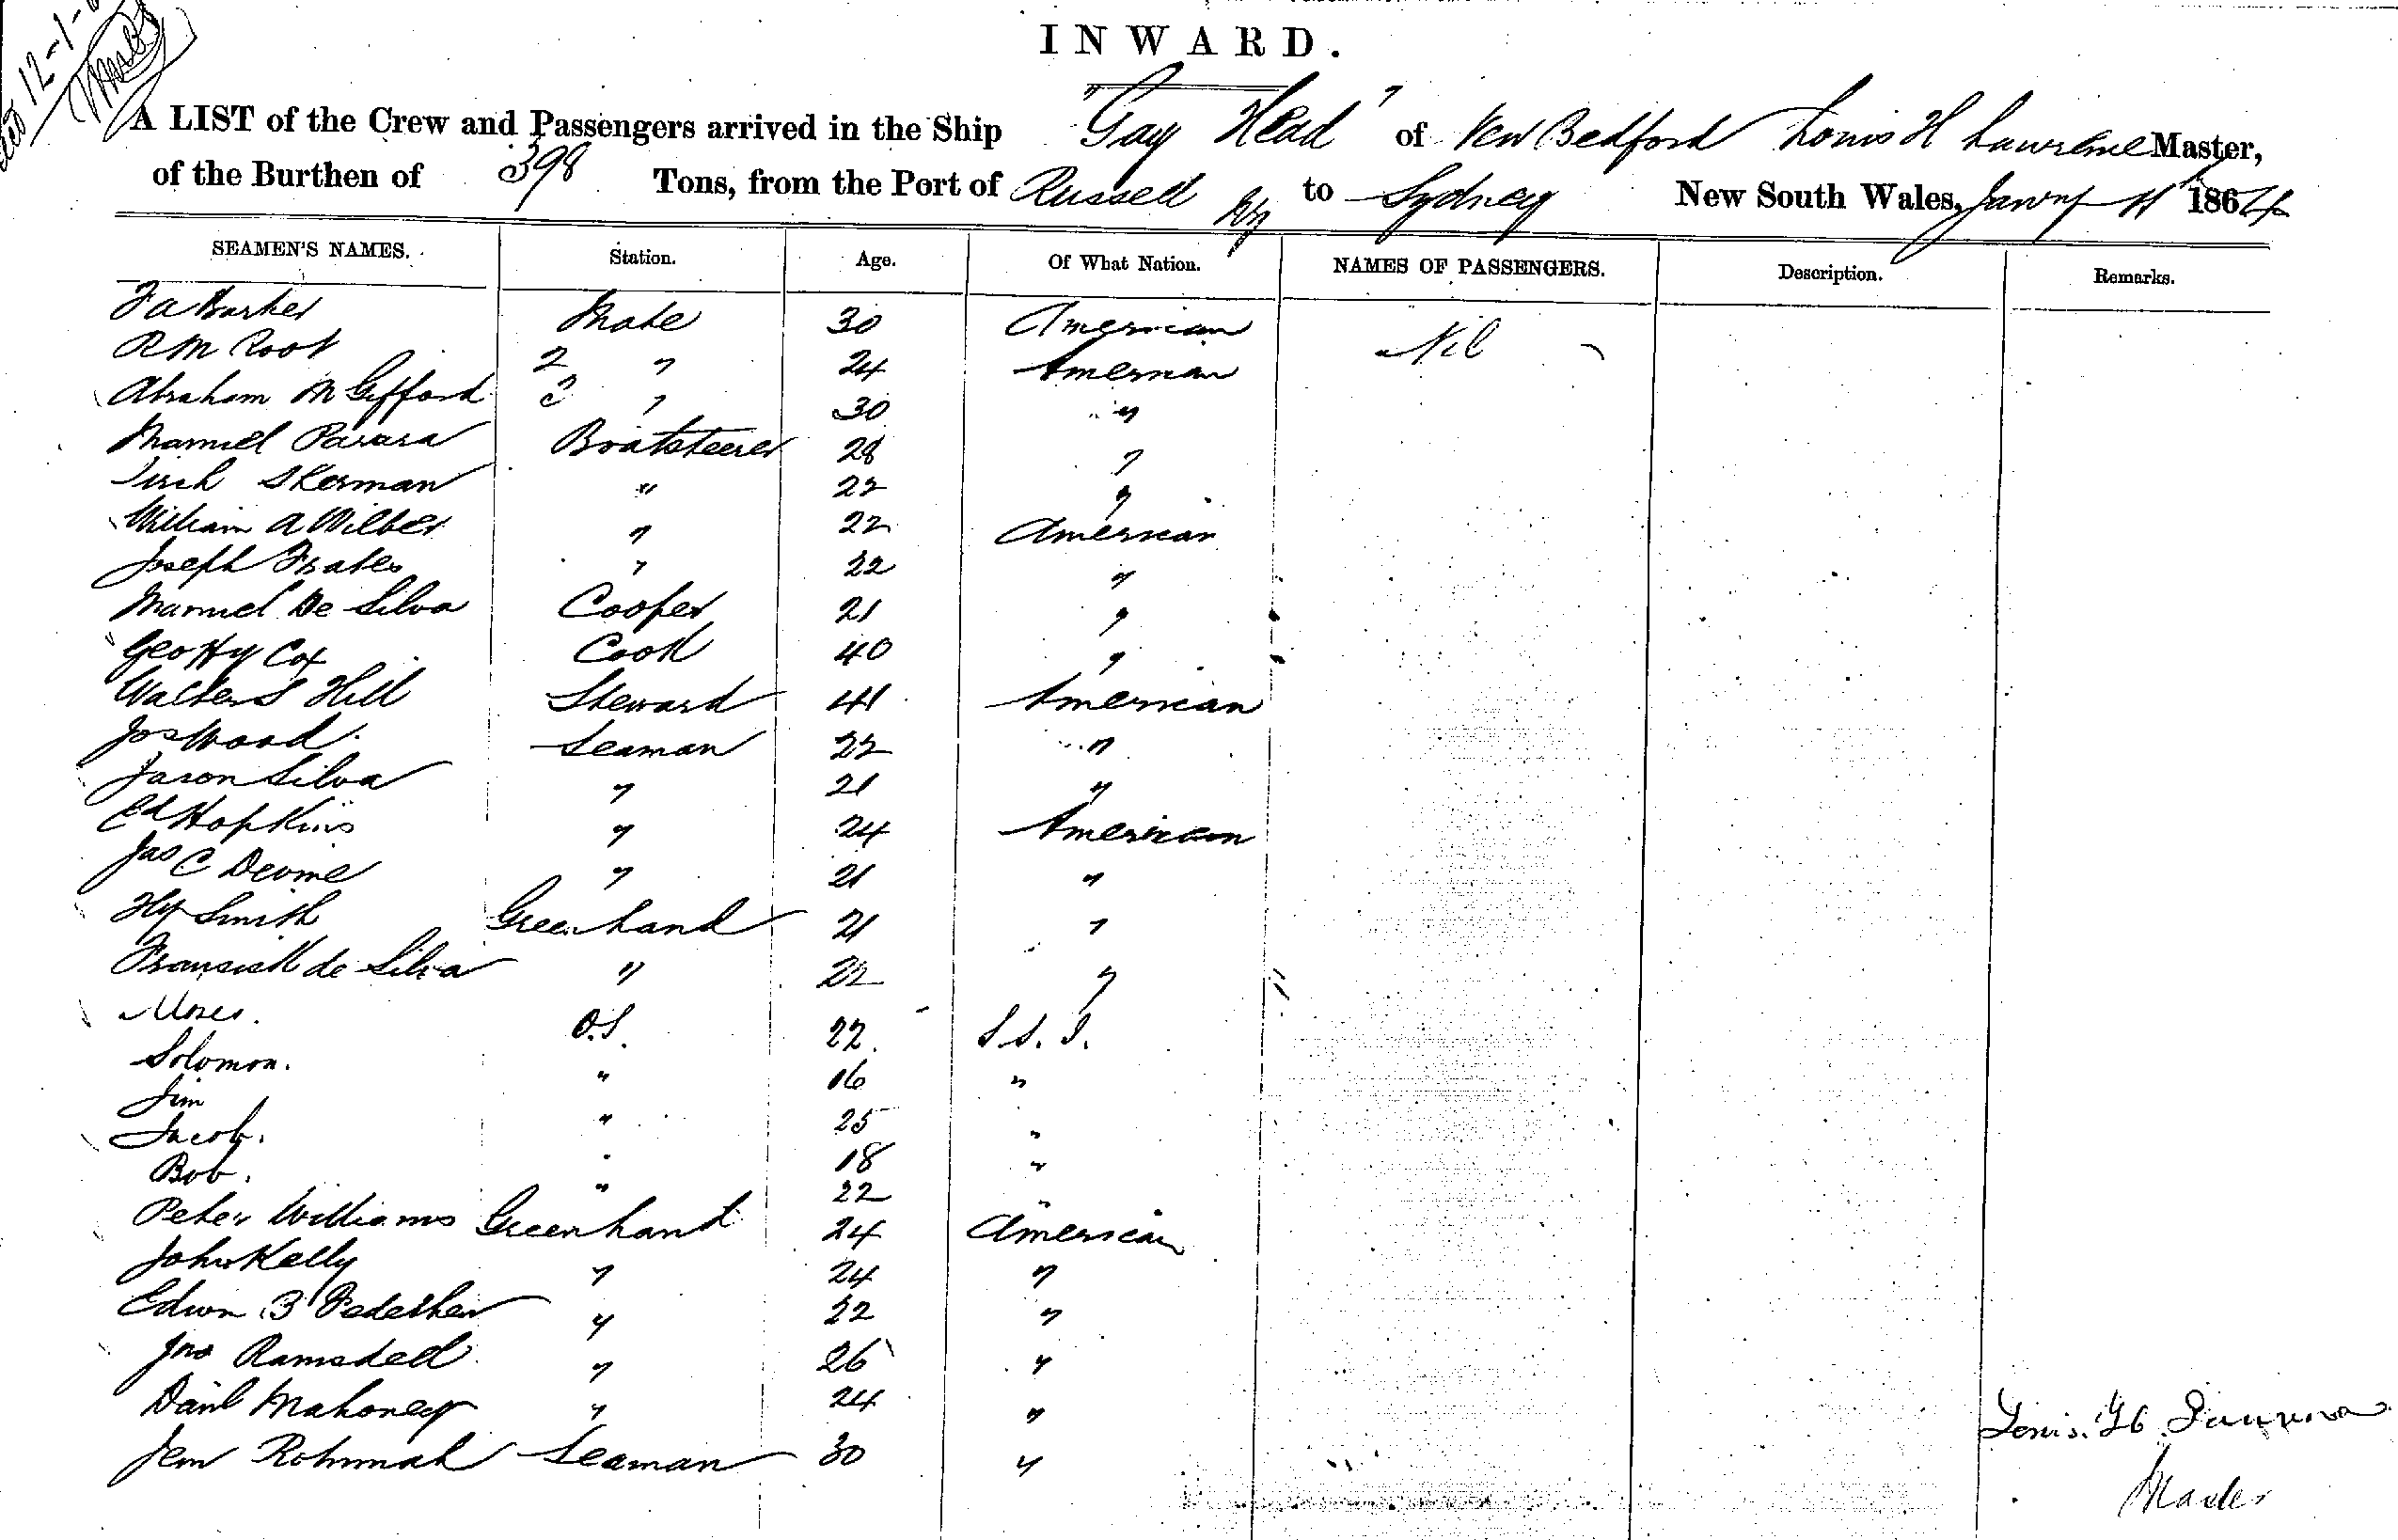 12-1-
INWARD.
A LIST of the Crew and Passengers arrived in the Ship "Gay Head" of New Bedford Louis H Lawrence Master,
of the Burthen of 398 Tons, from the Port of Russell to Sydney New South Wales, Jany 11th 1864
SEAMEN'S NAMES. Station. Age. Of What Nation. NAMES OF PASSENGERS. Description. Remarks.
F A Barker Mate 30 American Nil
R M Root 2 " 24 American
Abraham M Gifford 3 " 30 "
Manuel Parara Boatsteerer 28 "
Sherman " 22 "
William A Wilber " 22 American
Joseph Frates " 22 "
Manuel De Silva Cooper 21 "
Geo Hy Cox Cook 40 "
Walter S Hill Steward 41 American
Jos Wood Seaman 22 "
Jason Silva " 21 "
Ed Hopkins " 24 American
Jas C " 21 "
Hy Smith Greenhand 21 "
de Silva " 22 "
Moses. O.S. 22. S.S.I.
Solomon. " 16 "
Jim " 25 "
Jacob. " 18 "
Bob. " 22 "
Peter Williams Greenhand 24 American
John Kelly " 24 "
Edwin B " 22 "
Jno Ramsdell " 26 "
Danl Mahoney " 24 "
Jem Seaman 30 "
Louis. H. Lawrence
Master